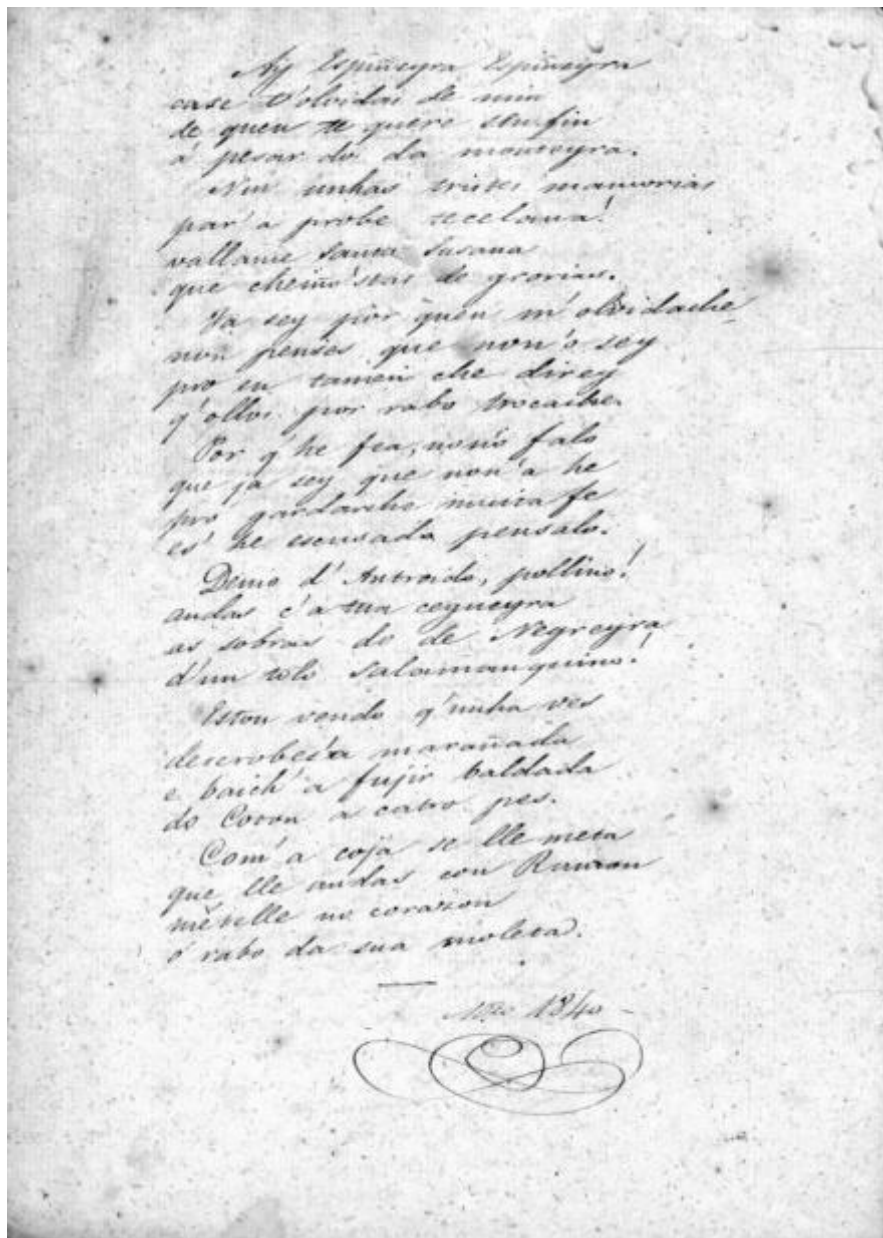 Ay Espiñeyra Espiñeyra
case t'olvidas de min
de quen te quere sin fin
á pesar do da monteyra.
Nin unhas tristes mamorias
par'a probe tecelana!
vallame santa Susana
que cheiño'stas de grorias.
Ya sey por quen m'olvidache
non penses que non'o sey
pro eu tamen che direy
q'ollos por rabo trocache.
Por q'he fea, non'o falo
que ja sey que non'a he
pro gardarche nunca fe
es' he escusado pensalo.
Demo d'Antroido, pollino!
andas c'a tua cegueyra
as sobras do de Negreyra
d'un tolo salamanquino!
Estou vendo q'unha ves
descrobes'a marañada
e baich'a fujir baldada
do Coron a catro pes.
Com'a coja se lle meta
que lle andas con Ramon
mételle no corazon
o rabo da sua moleta.
1840